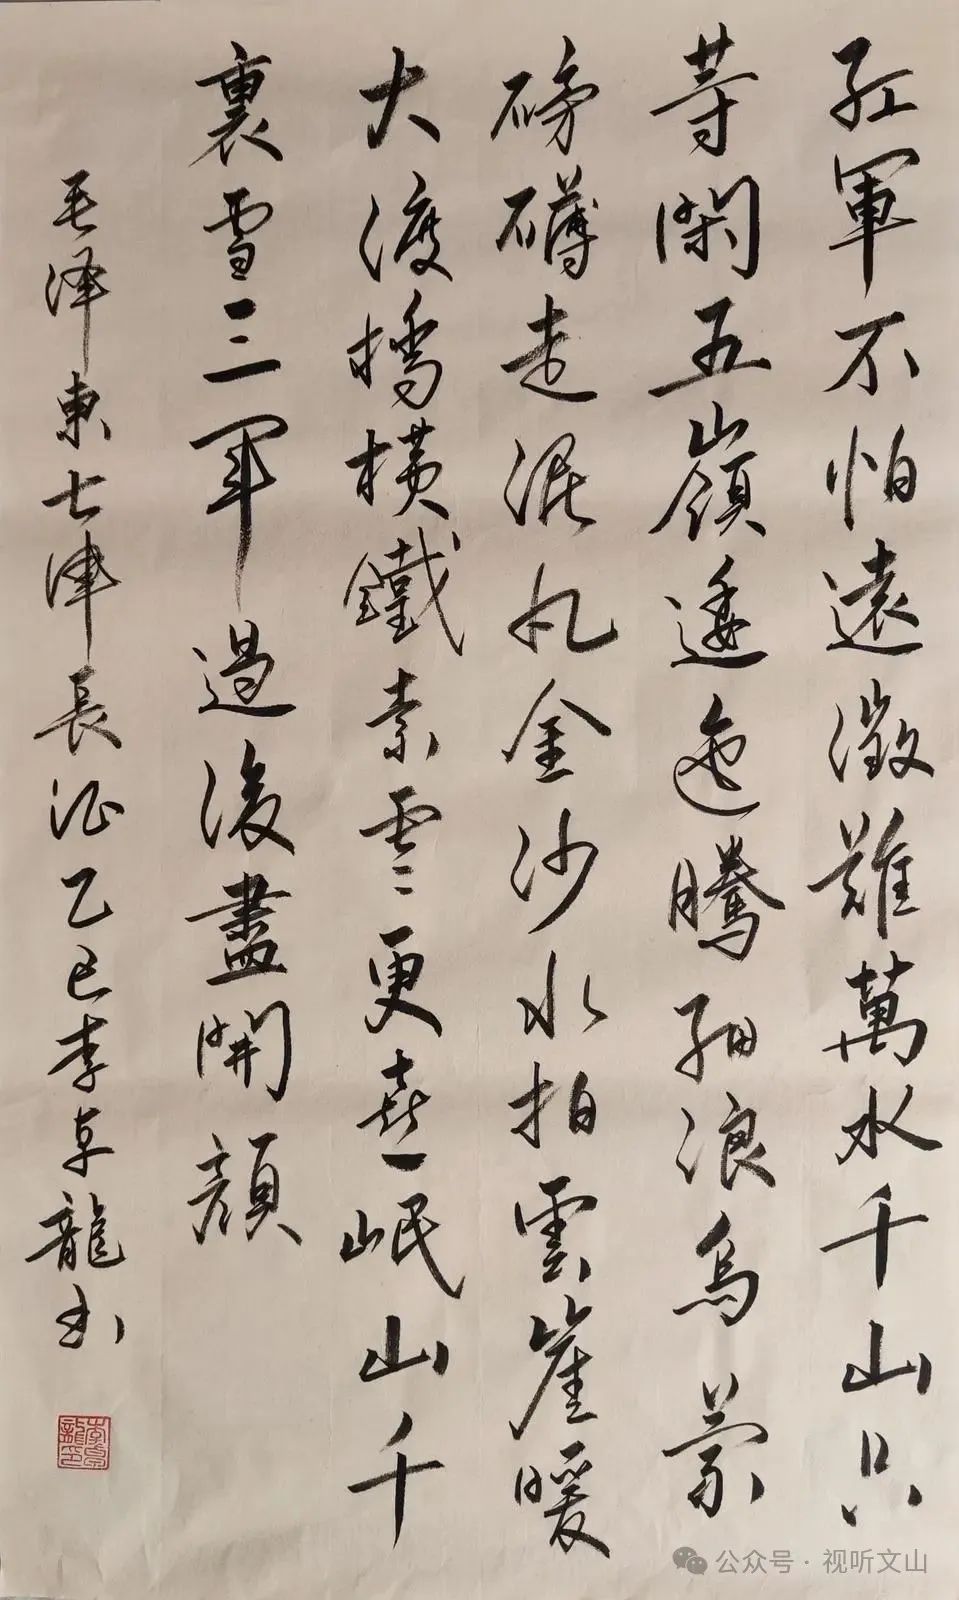 紅軍不怕遠徵難萬水千山只
等閑五嶺逶迤騰細浪烏蒙
磅礴走泥丸金沙水拍雲崖暖
大渡橋橫鐵索寒更喜岷山千
裏雪三軍過後盡開顏
毛泽東七律長征乙巳李卓龍书
李卓龍印
公众号 · 视听文山